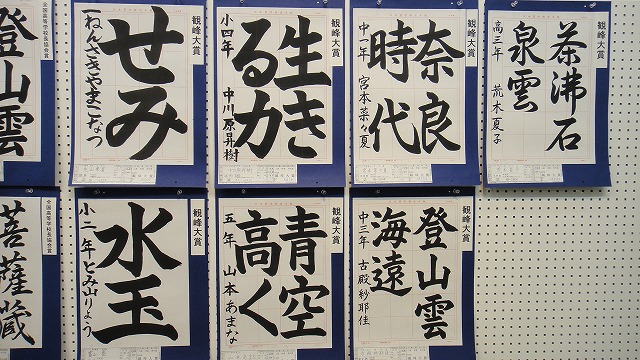 観峰大賞
茶沸石
泉雲
高三年 荒木夏子
観峰大賞
奈良
時代
中一年 宮本菜々夏
観峰大賞
生き
る力
小四年 中川原昇樹
観峰大賞
せみ
一ねんさきやまこなつ
全国高等学校長協会賞
登山雲
観峰大賞
登山雲
海遠
中三年 古殿紗耶佳
観峰大賞
青空
高く
五年 山本あまな
観峰大賞
水玉
小二年とみ山りょう
全国高等学校長協会賞
菩薩蔵